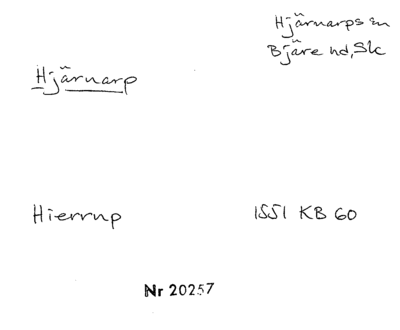 Hjärnarps sn
Bjäre hd, Sk
Hjärnarp
Hierrup 1551 KB 60
Nr 20257